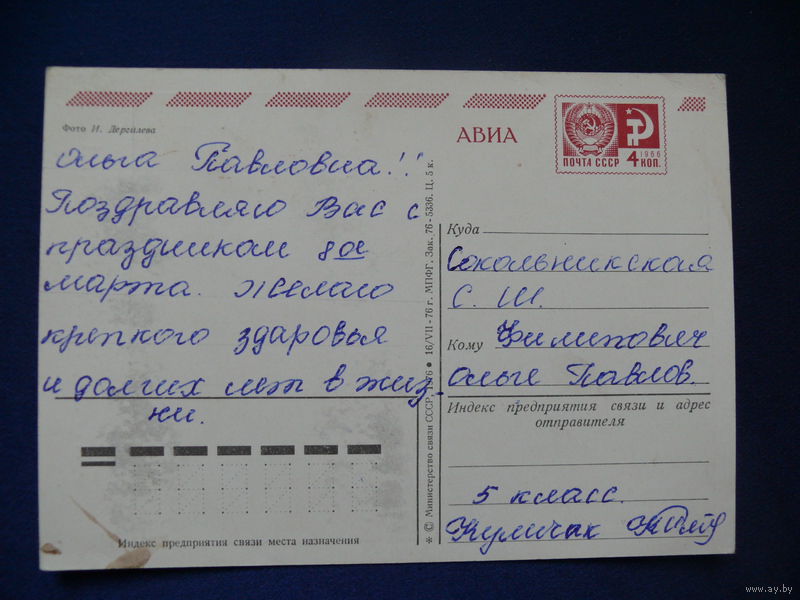 Фото И. Дергилева
Ольга Павловна!!
Поздравляю Вас с
праздником 8ое
марта. Желаю
крепкого здаровья
и долгих лет в жиз-
ни.
Индекс предприятия связи места назначения
* © Министерство связи СССР, 1976 ● 16/VII-76 г. МПФГ. Зак. 76-5336. Ц. 5 к.
АВИА
ПОЧТА СССР
1966
4 КОП.
Куда
Сокольникская
С. Ш.
Кому Филипович
Ольге Павлов.
Индекс предприятия связи и адрес
отправителя
5 класс.
www.ay.by